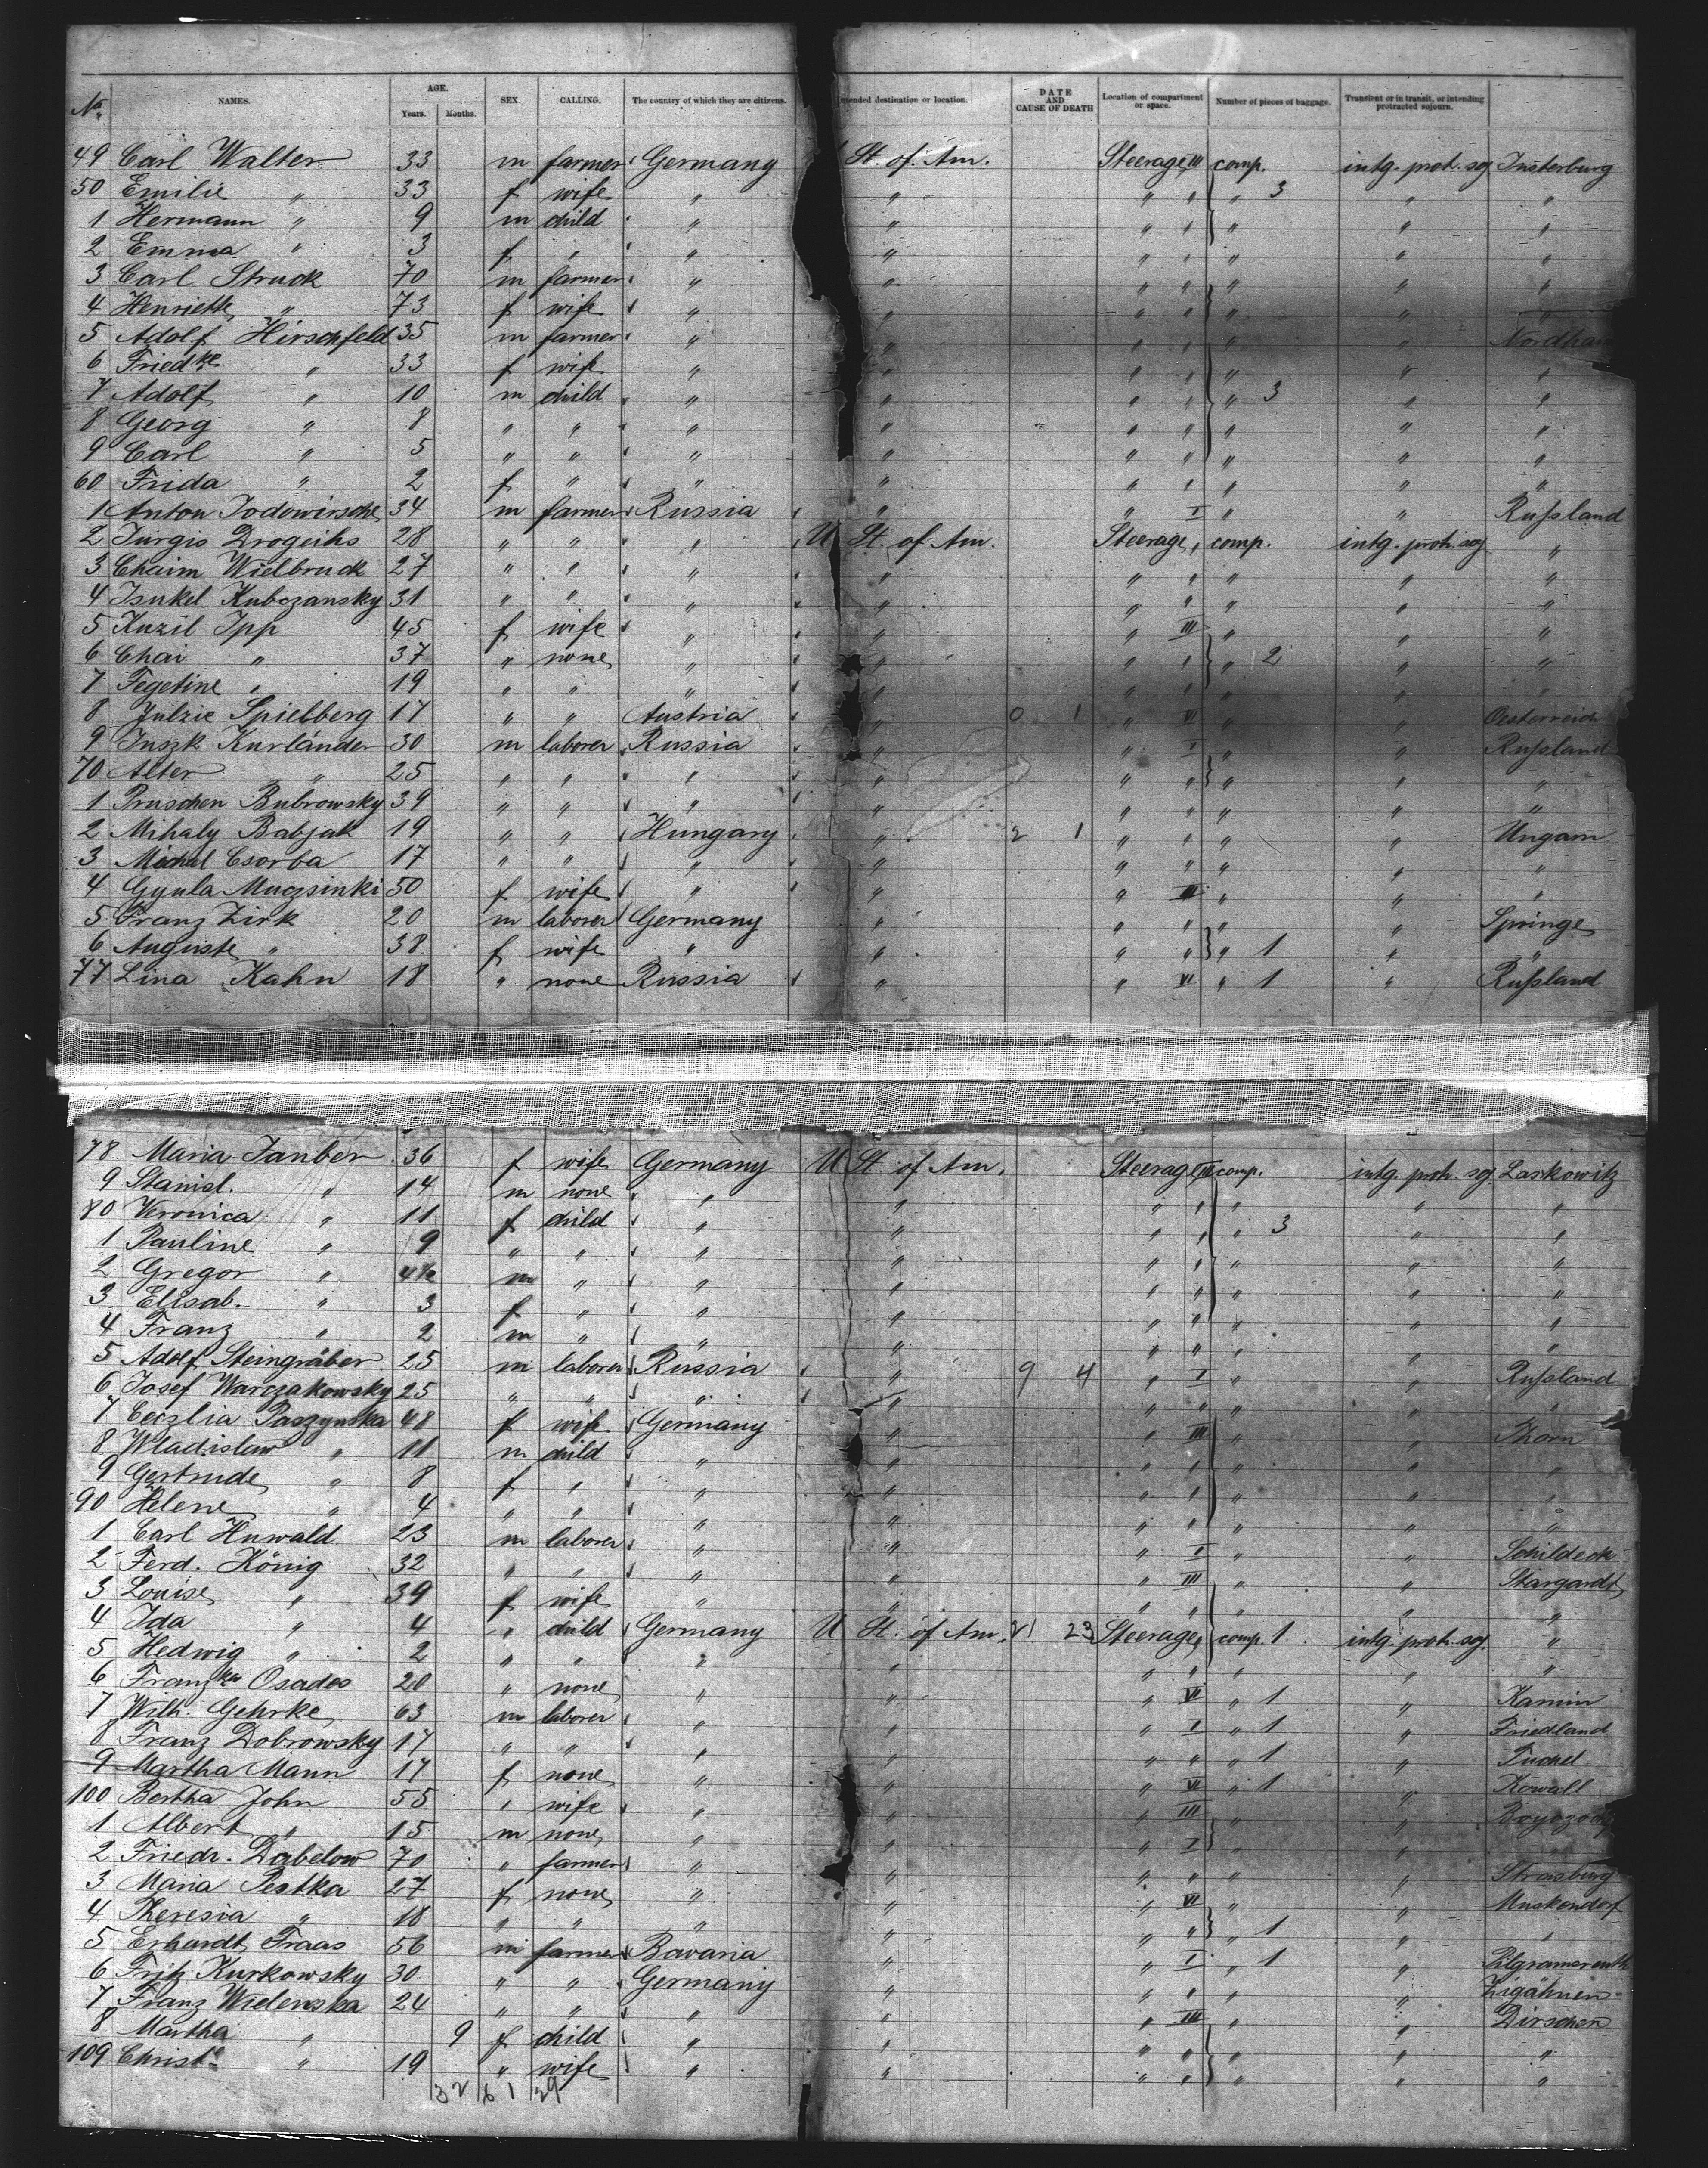 No. NAMES. AGE. Years. Months. SEX. CALLING. The country of which they are citizens. Intended destination or location. DATE AND CAUSE OF DEATH Location of compartment or space. Number of pieces of baggage. Transient or in transit, or intending protracted sojourn.
49 Carl Walter 33 m farmer Germany St. of. Am. Steerage III comp. intg. protr. soj. Insterburg
50 Emilie " 33 f wife " " " " " 3 " "
1 Hermann " 9 m child " " " " " " "
2 Emma " 3 f " " " " " " " "
3 Carl Struck 70 m farmer " " " " " " "
4 Henriette " 73 f wife " " " " " " "
5 Adolf Hirschfeld 35 m farmer " " " " " "
6 Friedke " 33 f wife " " " " " " "
7 Adolf " 10 m child " " " " " 3 " "
8 Georg " 8 " " " " " " " " "
9 Carl " 5 " " " " " " " " "
60 Frida " 2 f " " " " " " " "
1 Anton Jodowirsche 34 m farmer Russia " " I " " Russland
2 Jurgis Drogeihs 28 " " " U St. of. Am. Steerage " comp. intg. protr. soj. "
3 Chaim Wielbruck 27 " " " " " " " " "
4 Isukel Kubczansky 31 " " " " " " " " "
5 Kuzil Ipp 45 f wife " " " III " " "
6 Chai " 37 " none " " " " " 2 " "
7 Fegetine " 19 " " " " " " " " "
8 Julzie Spielberg 17 " " Austria " 0 1 " VI " " Oesterreich
9 Iuszk Kurländer 30 m laborer Russia " " I " " Russland
70 Alter " 25 " " " " " " " " "
1 Pruschen Bubrowsky 39 " " " " " " " " "
2 Mihaly Babjak 19 " " Hungary " 2 1 " " " " Ungarn
3 Michal Csorba 17 " " " " " " " " "
4 Gyula Muczsinki 50 f wife " " " III " " "
5 Franz Zirk 20 m laborer Germany " " " " " Springe
6 Auguste " 38 f wife " " " " " 1 " "
77 Lina Kahn 18 " none Russia " " VI " 1 " Russland
78 Maria Tanber 36 f wife Germany U St. of Am. Steerage III comp. intg. protr. soj. Laskowitz
9 Stanisl. " 14 m none " " " " " " "
80 Veronica " 11 f child " " " " " 3 " "
1 Pauline " 9 " " " " " " " " "
2 Gregor " 4½ m " " " " " " " "
3 Elisab. " 3 f " " " " " " " "
4 Franz " 2 m " " " " " " " "
5 Adolf Steingräber 25 m laborer Russia " 9 4 " I " " Russland
6 Josef Warczakowsky 25 " " " " " " " " "
7 Ceczlia Paszynska 48 f wife Germany " " III " " Thorn
8 Wladislaw " 11 m child " " " " " " "
9 Gertrude " 8 f " " " " " " " "
90 Helene " 4 " " " " " " " " "
1 Carl Huwald 23 m laborer " " " I " " Schildeck
2 Ferd. König 32 " " " " " III " " Stargardt
3 Louise " 39 f wife " " " " " " "
4 Ida " 4 " child Germany U St. of Am. 21 23 Steerage " comp. 1 intg. protr. soj. "
5 Hedwig " 2 " " " " " " " " "
6 Franzka Osados 20 " none " " " VI " 1 " Kamin
7 Wilh. Gehrke 63 m laborer " " " I " 1 " Friedland
8 Franz Dobrowsky 17 " " " " " " " 1 " Tuchel
9 Martha Mann 17 f none " " " VI " 1 " Kowall
100 Bertha John 55 " wife " " " III " "
1 Albert " 15 m none " " " I " "
2 Friedr. Dabelow 70 " farmer " " " " " " Strasburg
3 Maria Pestka 27 f none " " " VI " " Muskendorf
4 Theresia " 18 " " " " " " " 1 " "
5 Erhardt Fraas 56 m farmer Bavaria " " I " 1 " Pilgramsreuth
6 Fritz Kurkowsky 30 " " Germany " " " " " Zigähnen
7 Franz Wielenska 24 " " " " " III " " Dirschen
8 Martha " 9 f child " " " " " " "
109 Christe " 19 " wife " " " " " " "
32 61 29